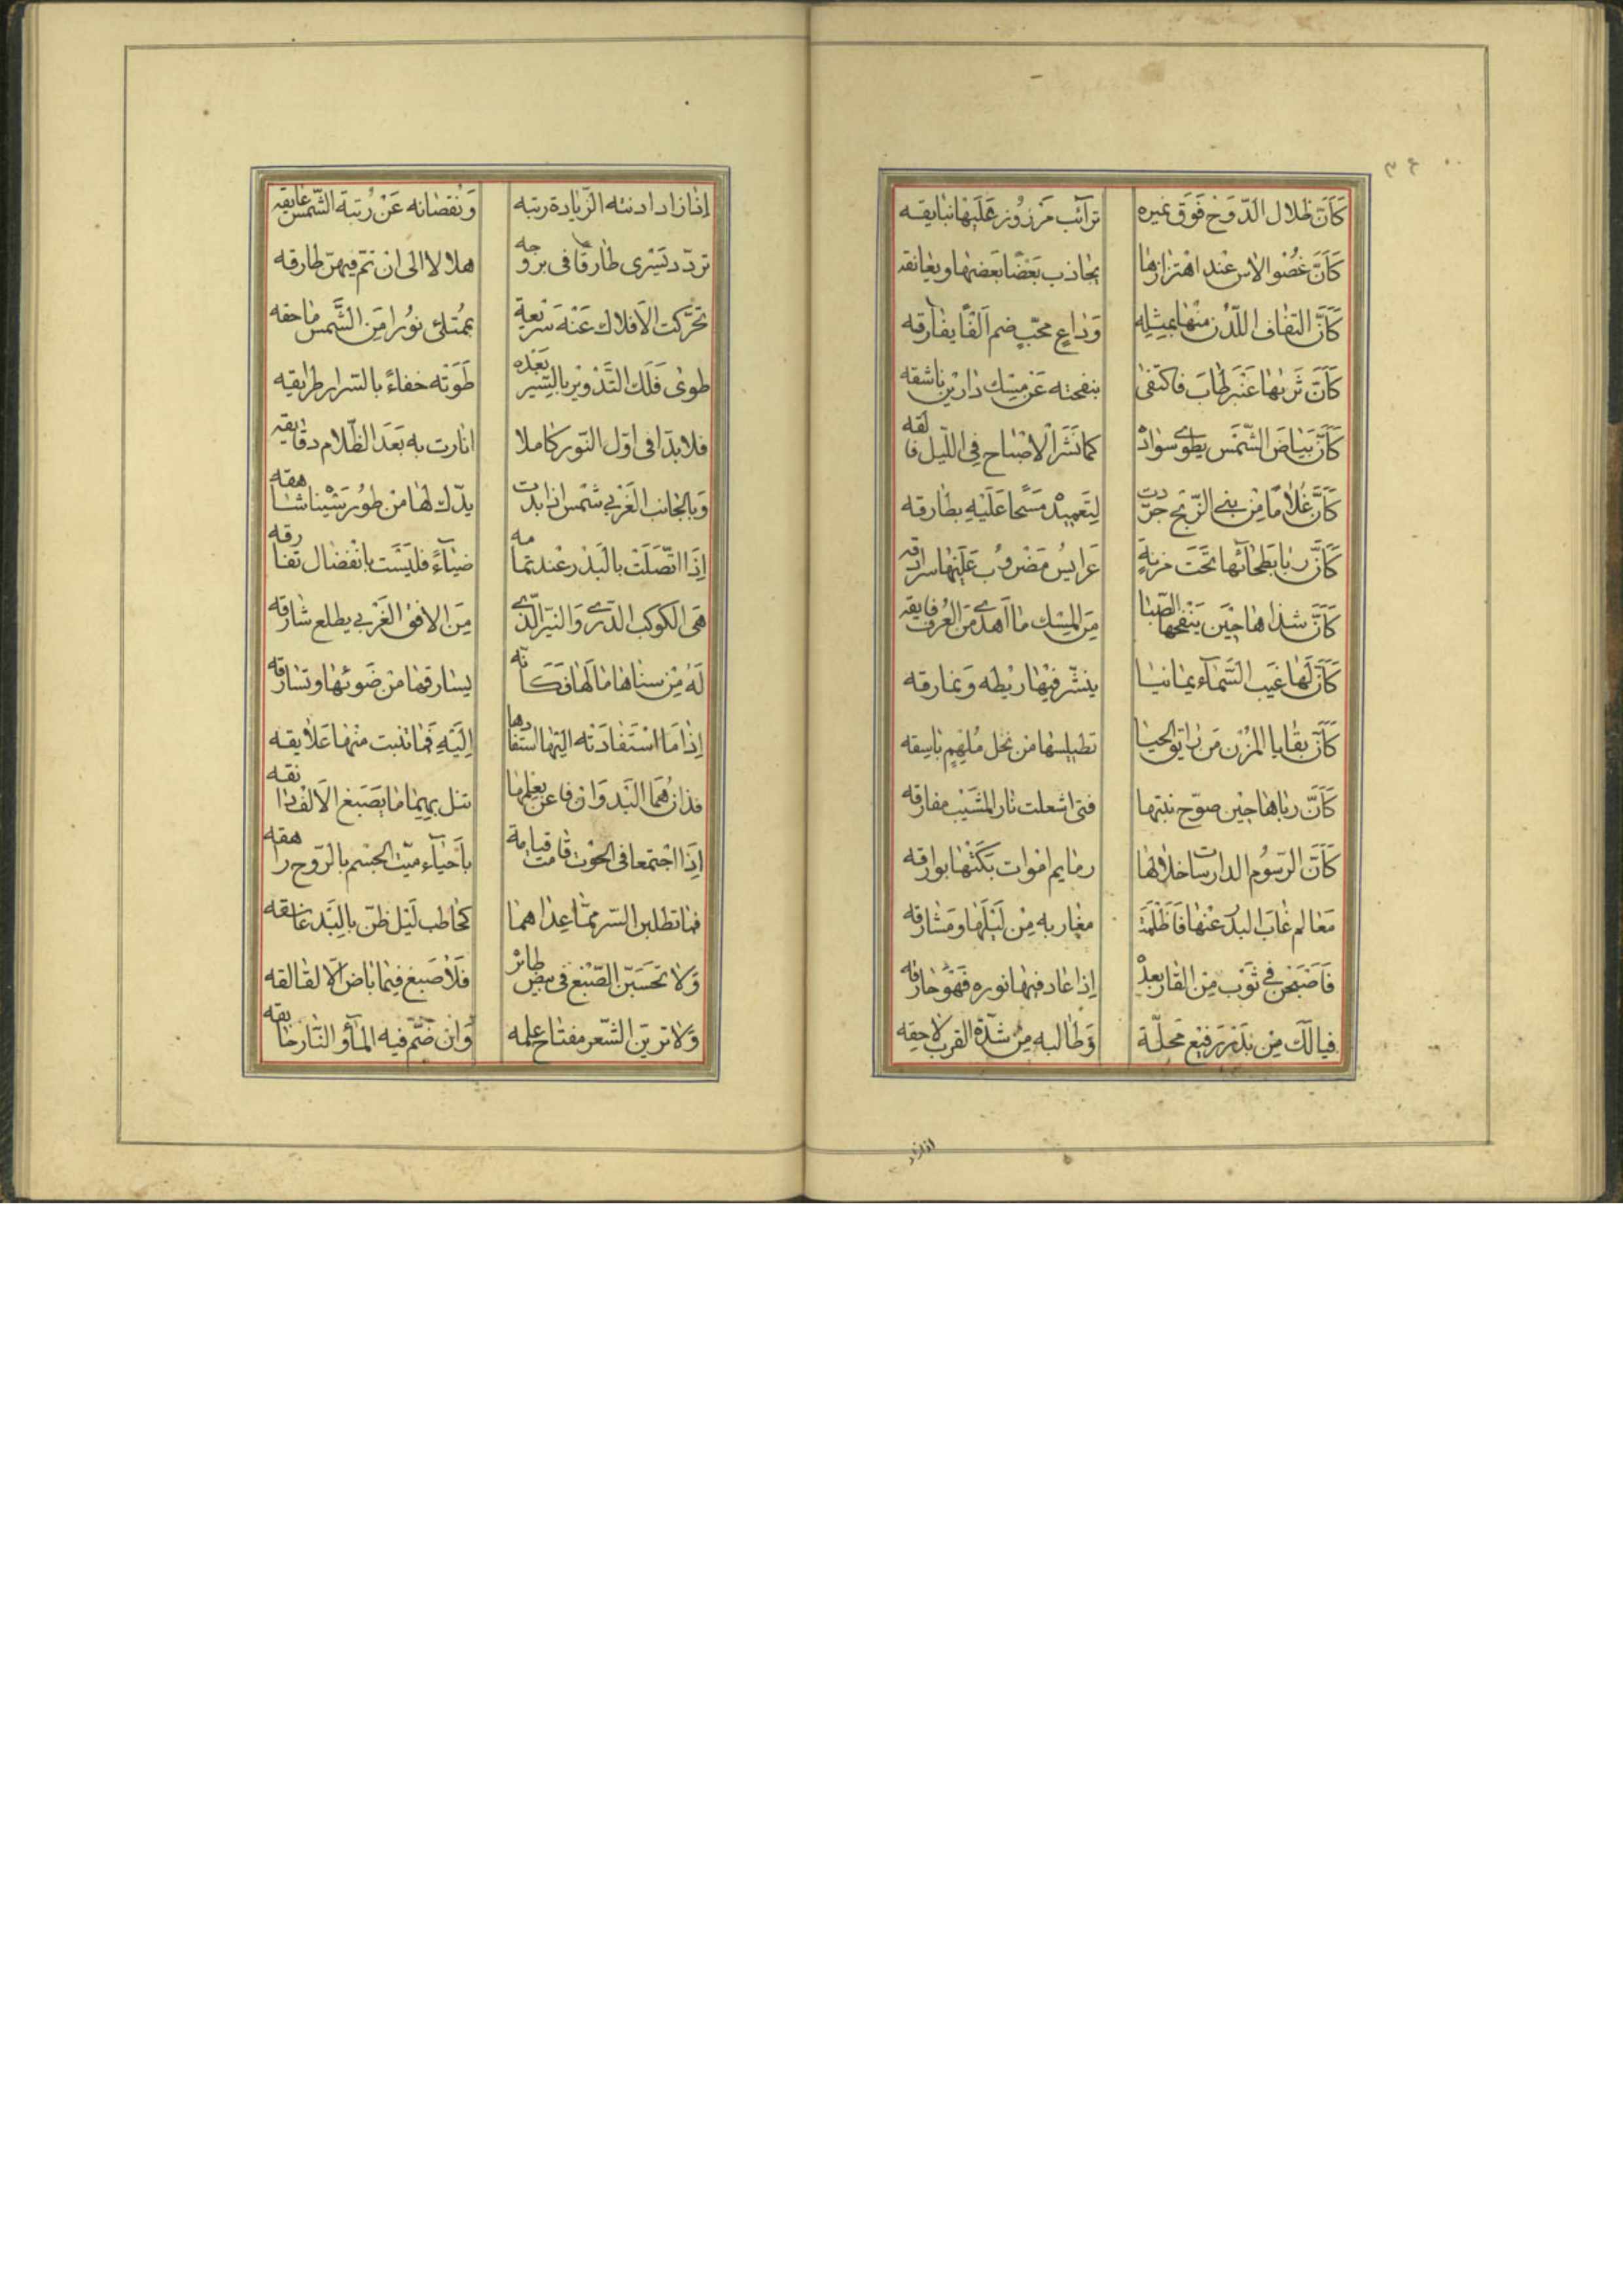 كَأَنَّ ظلال الدّوَح فَوَق غيره تَرآئب مَزرُوز عَلَيْهَا بنايقه
كَأَنَّ غصُنوا الاس عند اهتزازها يجاذب بَعْضًا بَعضها ويعانقه
كَأَنَّ التفاف اللّدْن منْهَا بميثله وَدَاعٍ محبّ ضم الفًا يفارقه
كَأَنَّ تربها عَنْبر طابَ فاكتفى بنفحته عَن مِسْك دارين ناشقه
كَأَنَّ بَيَاضَ الشَّمْس يطوى سواده كما نَشَرَ الاصْبَاح فِى اللّيل فالقه
كَأَنَّ غُلامًا مِن بنى الزّنج جرّدت لِتَعميْد مَسَحًا عَلَيْهِ بطارقه
كَأَنَّ ربا بَطحَائها تَحَت مزنةٍ عَرايسُ مَضْروُب عَلَيْهَا سرادقه
كَأَنَّ شذاها حِيْنَ يَنْفحها الصّبا مِنَ المِسْك مَا اَهْدى مِنَ العُرف فايقه
كَأَنَّ لَها غَيب السَّمَآء يمانيا ينشّر فِيْهَا ريْطه وَنمارقه
كَأَنَّ بقايا المزْن مَن الحيا من نخل مُلْهِمٍ باسِقه
كَأَنَّ رباها حِيْن صوّح نبتها فتى اشعلت نار المشَيْب مفارقه
كَأَنَّ الرّسُوم الدارسات خلالها رمايم امْوات بَكَتْهَا بوارقه
مَعَالم غابَ البدر عَنْهَا فَاَظْلَمَتْ مغاربه مِن لَيْلَهَا ومَشَارقه
فَاَضْبَحْن فى ثَوْب مِن القار بعده إذا عاد فيها نوره فَهْوَ خارقه
فيالَكَ مِن بَدْر رَفيْع مَحَلّة وَطَالبه مِنْ شدّة القرب لاحِقه
اذا زاد
إذا زاد ادنته الزّيادة رتبه وَنُقصَانه عَنْ رُتبَة الشّمْس عايقه
تردّد يَسْرى طارقًا فى بروجه هلالا الى ان تمّ فيهنّ طارقه
تحرَّكت الاَفلاك عَنْهَ سَريْعة بمُمْتلئ نوُرا مِن الشَّمس ماحقه
طوى فَلَك التَّدْوِيْر بالسّير بَعْده طَوَتْه خفاءً بالسّرار طرايقه
فلا بدّ افى اوّل النّور كاملا انارت به بَعَدَ الظّلام دقايقه
وَبالجَانب الغَرْبى شمْس اذا بدت يدّك لها من طُور سَيْنا شَاهقه
إذَا اتّصَلَتْ بالبَدْر عند تمامه ضيآءً فليْسَت بانْفضال تفارقه
هَى الكوكب الدّرى وَالنيّر الّذى مِنَ الافق الغَرْبى يطلع شارقه
لَه مِنْ سناها مَا لَهَا فَكَانّه يسارقها من ضَوئها وتسارقه
إذا مَا اسْتَفادَته اليَها استفادها اِلَيْهِ فَمَا نبت منْهَا عَلايقه
فذان هُمَا البَدوان فاعن بعِلمها تنل بهِمَا مَا يصَبغ الاَلْف دانقه
اِذَا اجْتمعا فى الحوْت قامت قيامة بأحيآء ميّت الجِسْم بالرّوح راهقه
فما تطلبن السّر ممّا عِداهما كحَاطب لَيْل ظنّ بالبَد عاشقه
وَلا تحسَبَنّ الصّبْغ فى بيض طائر فَلاَ صَبغ فيمَا باض الاّ لقالقه
وَلا ترينّ الشّعر مفتاح علمه وَان ضَمّ فيه المآؤ النّار خايقه